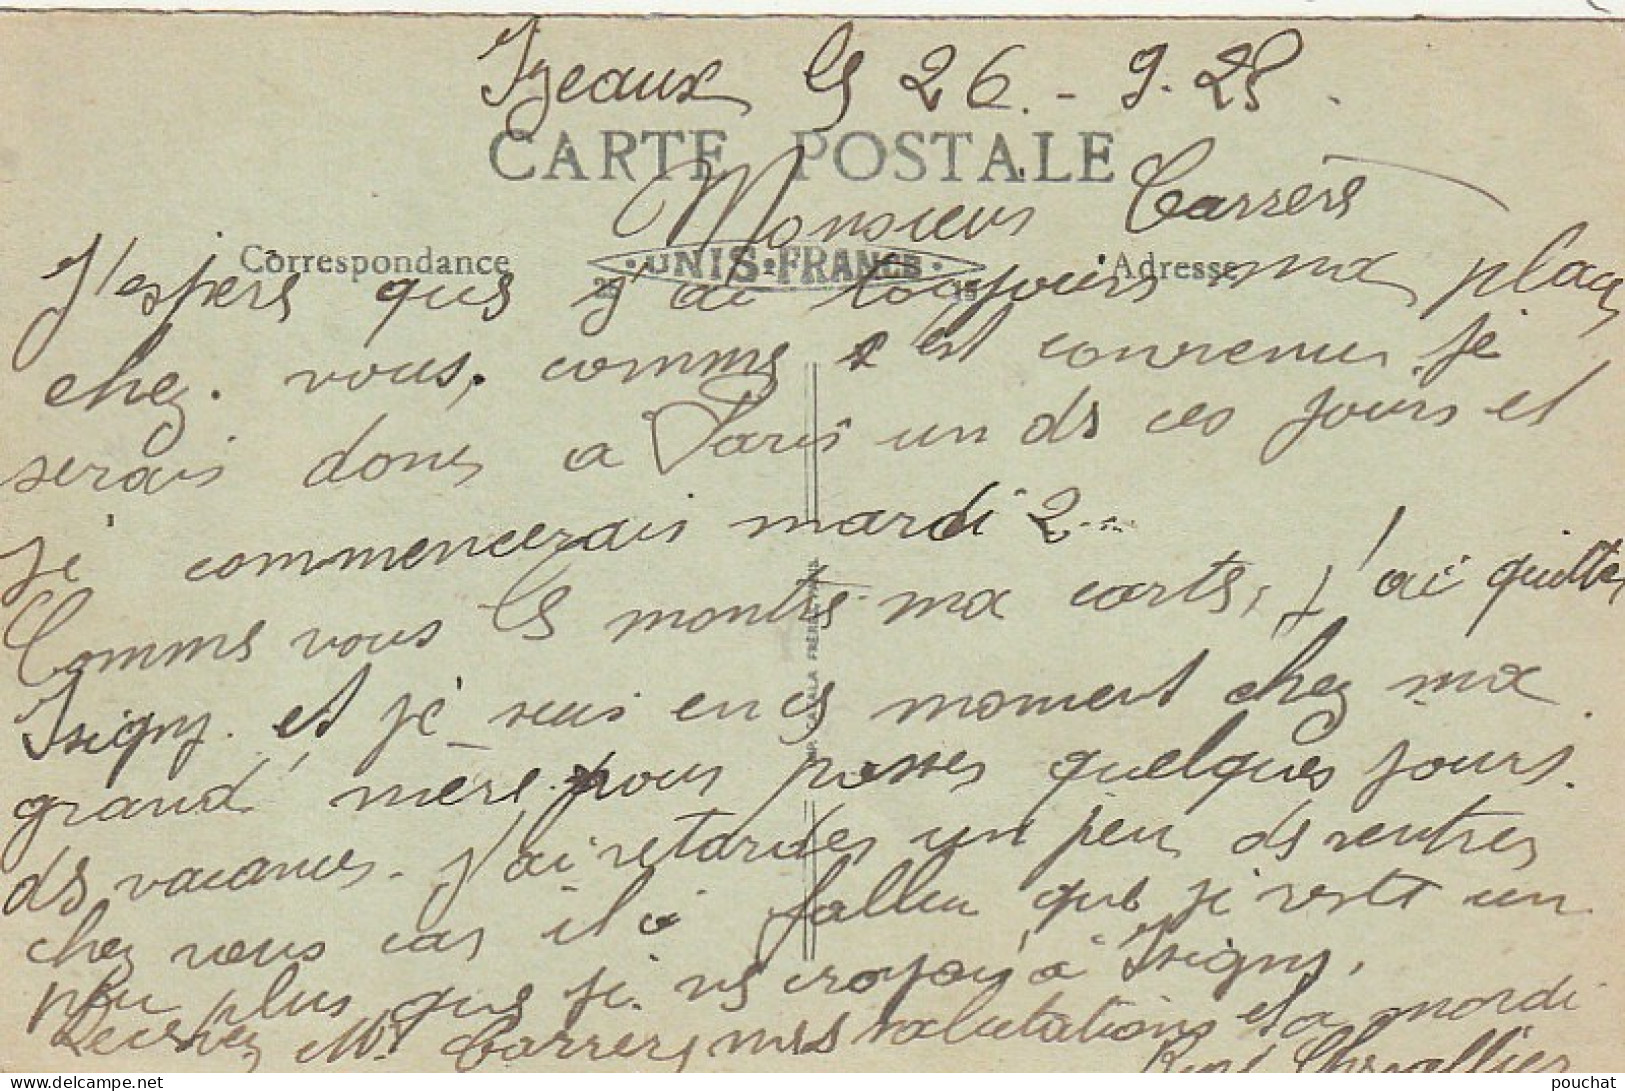 Izeaux le 26 - 9. 28.
CARTE POSTALE
Monsieur Carrère
Correspondance
UNIS-FRANCE
Adresse
J'espere que j'ai toujours ma place
chez vous, comme c'est convenu, je
serais donc a Paris un de ces jours et
je commencerais mardi 2
Comme vous le montre ma carte, j'ai quitté
Isigny. et je suis en ce moment chez ma
grand' mère pour passer quelques jours.
de vacances. J'ai retarder un peu de rentrer
chez vous car il a fallu que je reste un
peu plus que je ne croyais à Isigny.
Recevez Mr Carrere, mes salutations et a mardi
René Chevallier
CATALA FRERES PARIS
pouchat